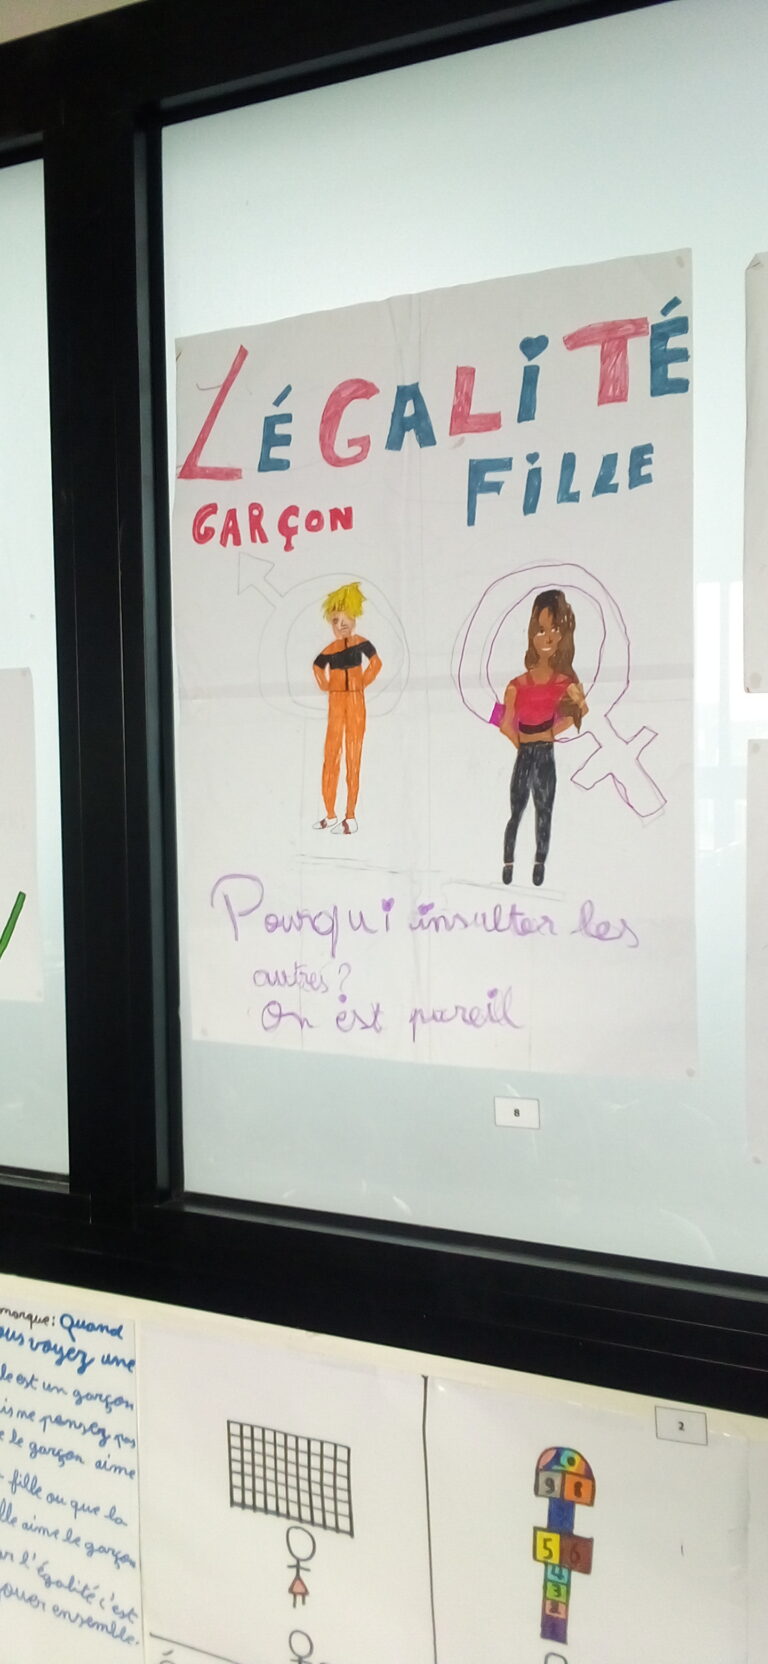 LÉGALiTÉ
GARÇON
FiLLE
Pourqui insulter les
autres?
On est pareil
8
marque: Quand
ous voyez une
le est un garçon
is me pensez pas
e le garçon aime
fille ou que la
lle aime le garçon
ar l'égalité c'est
jouer ensemble.
2
9 8
5 6
4
3
2
1